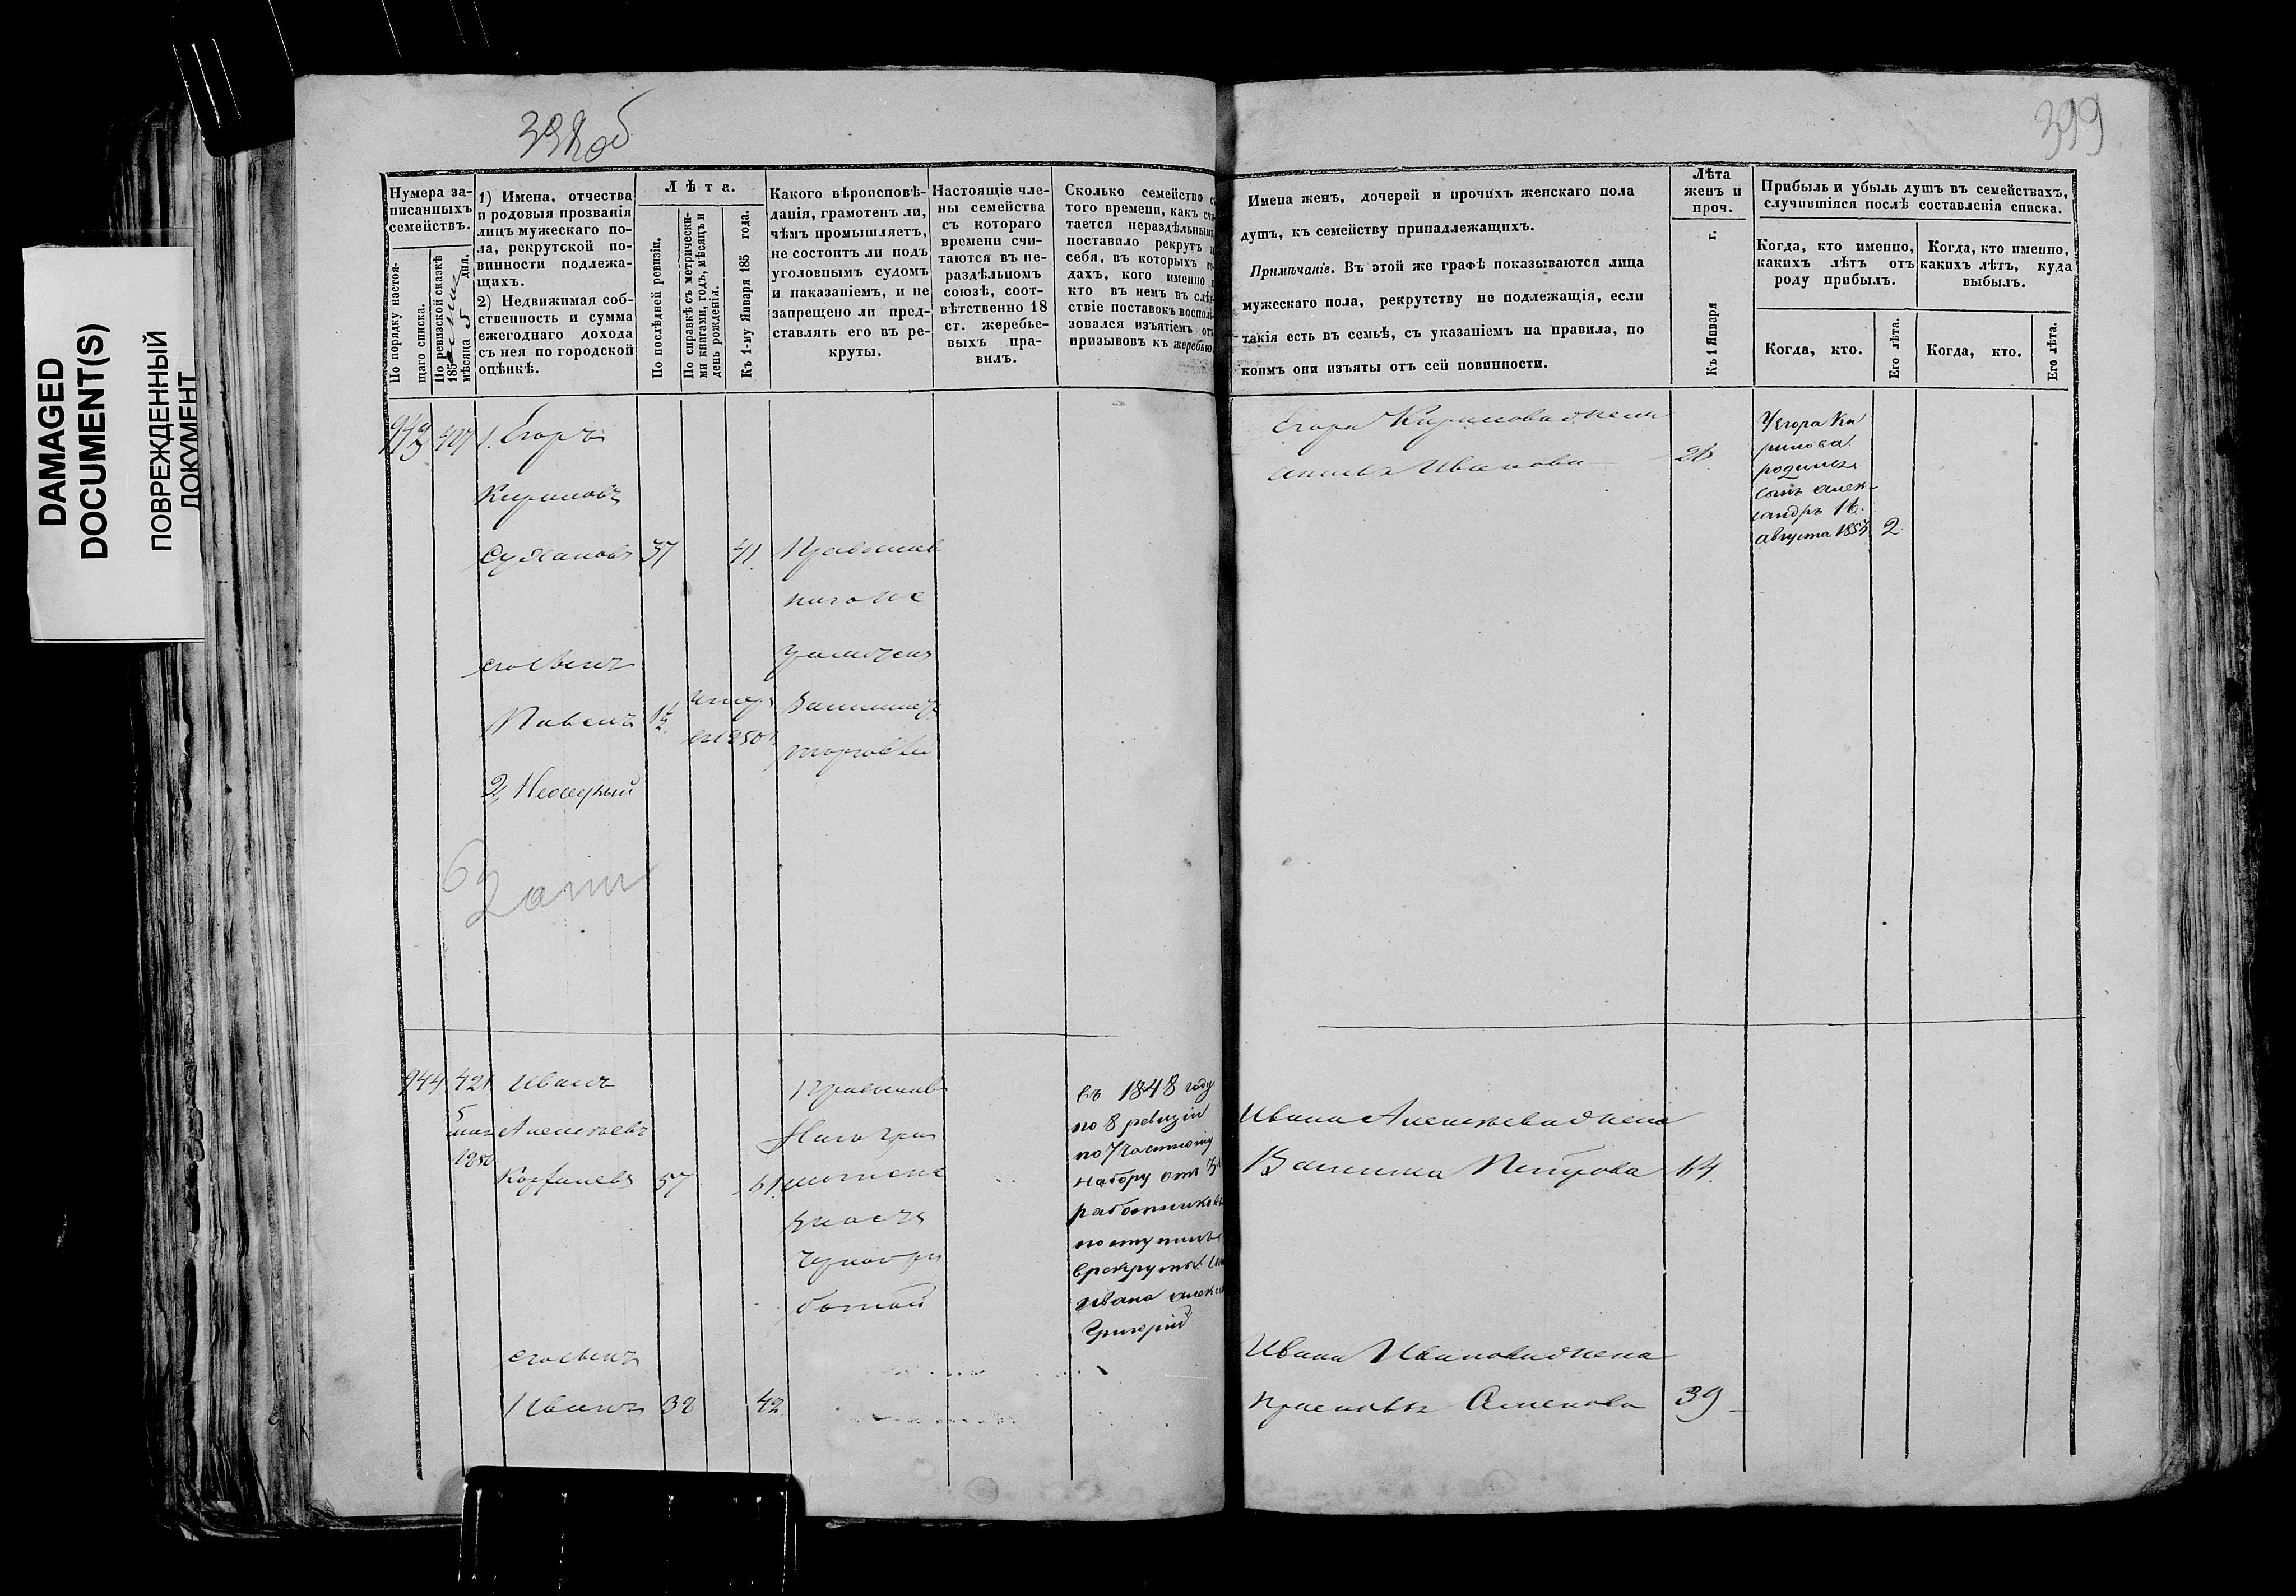 DAMAGED
DOCUMENT(S)
ПОВРЕЖДЕННЫЙ
ДОКУМЕНТ
398об
399
Нумера за-
писанныхъ
семействъ.
По порядку настоя-
щаго списка.
По ревизской сказкѣ
185
мѣсяца 5 дня.
1) Имена, отчества
и родовыя прозванія
лицъ мужескаго по-
ла, рекрутской по-
винности подлежа-
щихъ.
2) Недвижимая соб-
ственность и сумма
ежегоднаго дохода
съ нея по городской
оцѣнкѣ.
Лѣта.
По послѣдней ревизіи.
По справкѣ съ метрически-
ми книгами, годъ, мѣсяцъ и
день рожденія.
Къ 1-му Января 185 года.
Какого вѣроисповѣ-
данія, грамотенъ ли,
чѣмъ промышляетъ,
не состоитъ ли подъ
уголовнымъ судомъ
и наказаніемъ, и не
запрещено ли пред-
ставлять его въ ре-
круты.
Настоящіе чле-
ны семейства
съ котораго
времени счи-
таются въ не-
раздѣльномъ
союзѣ, соот-
вѣтственно 18
ст. жеребье-
выхъ пра-
вилъ.
Сколько семейство с
того времени, какъ счи
тается нераздѣльнымъ
поставило рекрутъ и
себя, въ которыхъ го
дахъ, кого именно и
кто въ немъ въ слѣд
ствіе поставокъ восполь
зовался изъятіемъ отъ
призывовъ къ жеребью.
Имена женъ, дочерей и прочихъ женскаго пола
душъ, къ семейству принадлежащихъ.
Примѣчаніе. Въ этой же графѣ показываются лица
мужескаго пола, рекрутству не подлежащія, если
такія есть въ семьѣ, съ указаніемъ на правила, по
коимъ они изъяты отъ сей повинности.
Лѣта
женъ и
проч.
Къ 1 Января г.
Прибыль и убыль душъ въ семействахъ,
случившіяся послѣ составленія списка.
Когда, кто именно,
какихъ лѣтъ отъ
роду прибылъ.
Когда, кто именно,
какихъ лѣтъ, куда
выбылъ.
Когда, кто.
Его лѣта.
Когда, кто.
Его лѣта.
943
1. Егоръ
Кириловъ
37
41
Православ
его сынъ
Павелъ
2,
944 421 Иванъ
5
1850
Алексѣевъ
57
61
Православ
его сынъ
Иванъ 38
42
въ 1848 году
по 8 ревизіи
по 7 частному
набору отъ 3х
работниковъ
поступилъ
Ивана Алексѣ
Григорій
Егора Кирилова жена
Иванова
26
У Егора Ки
рилова
родился
сынъ Алек-
сандръ 16
августа 1853
2
Ивана Алексѣева жена
Петрова 64.
Ивана Иванова жена
Семенова 39